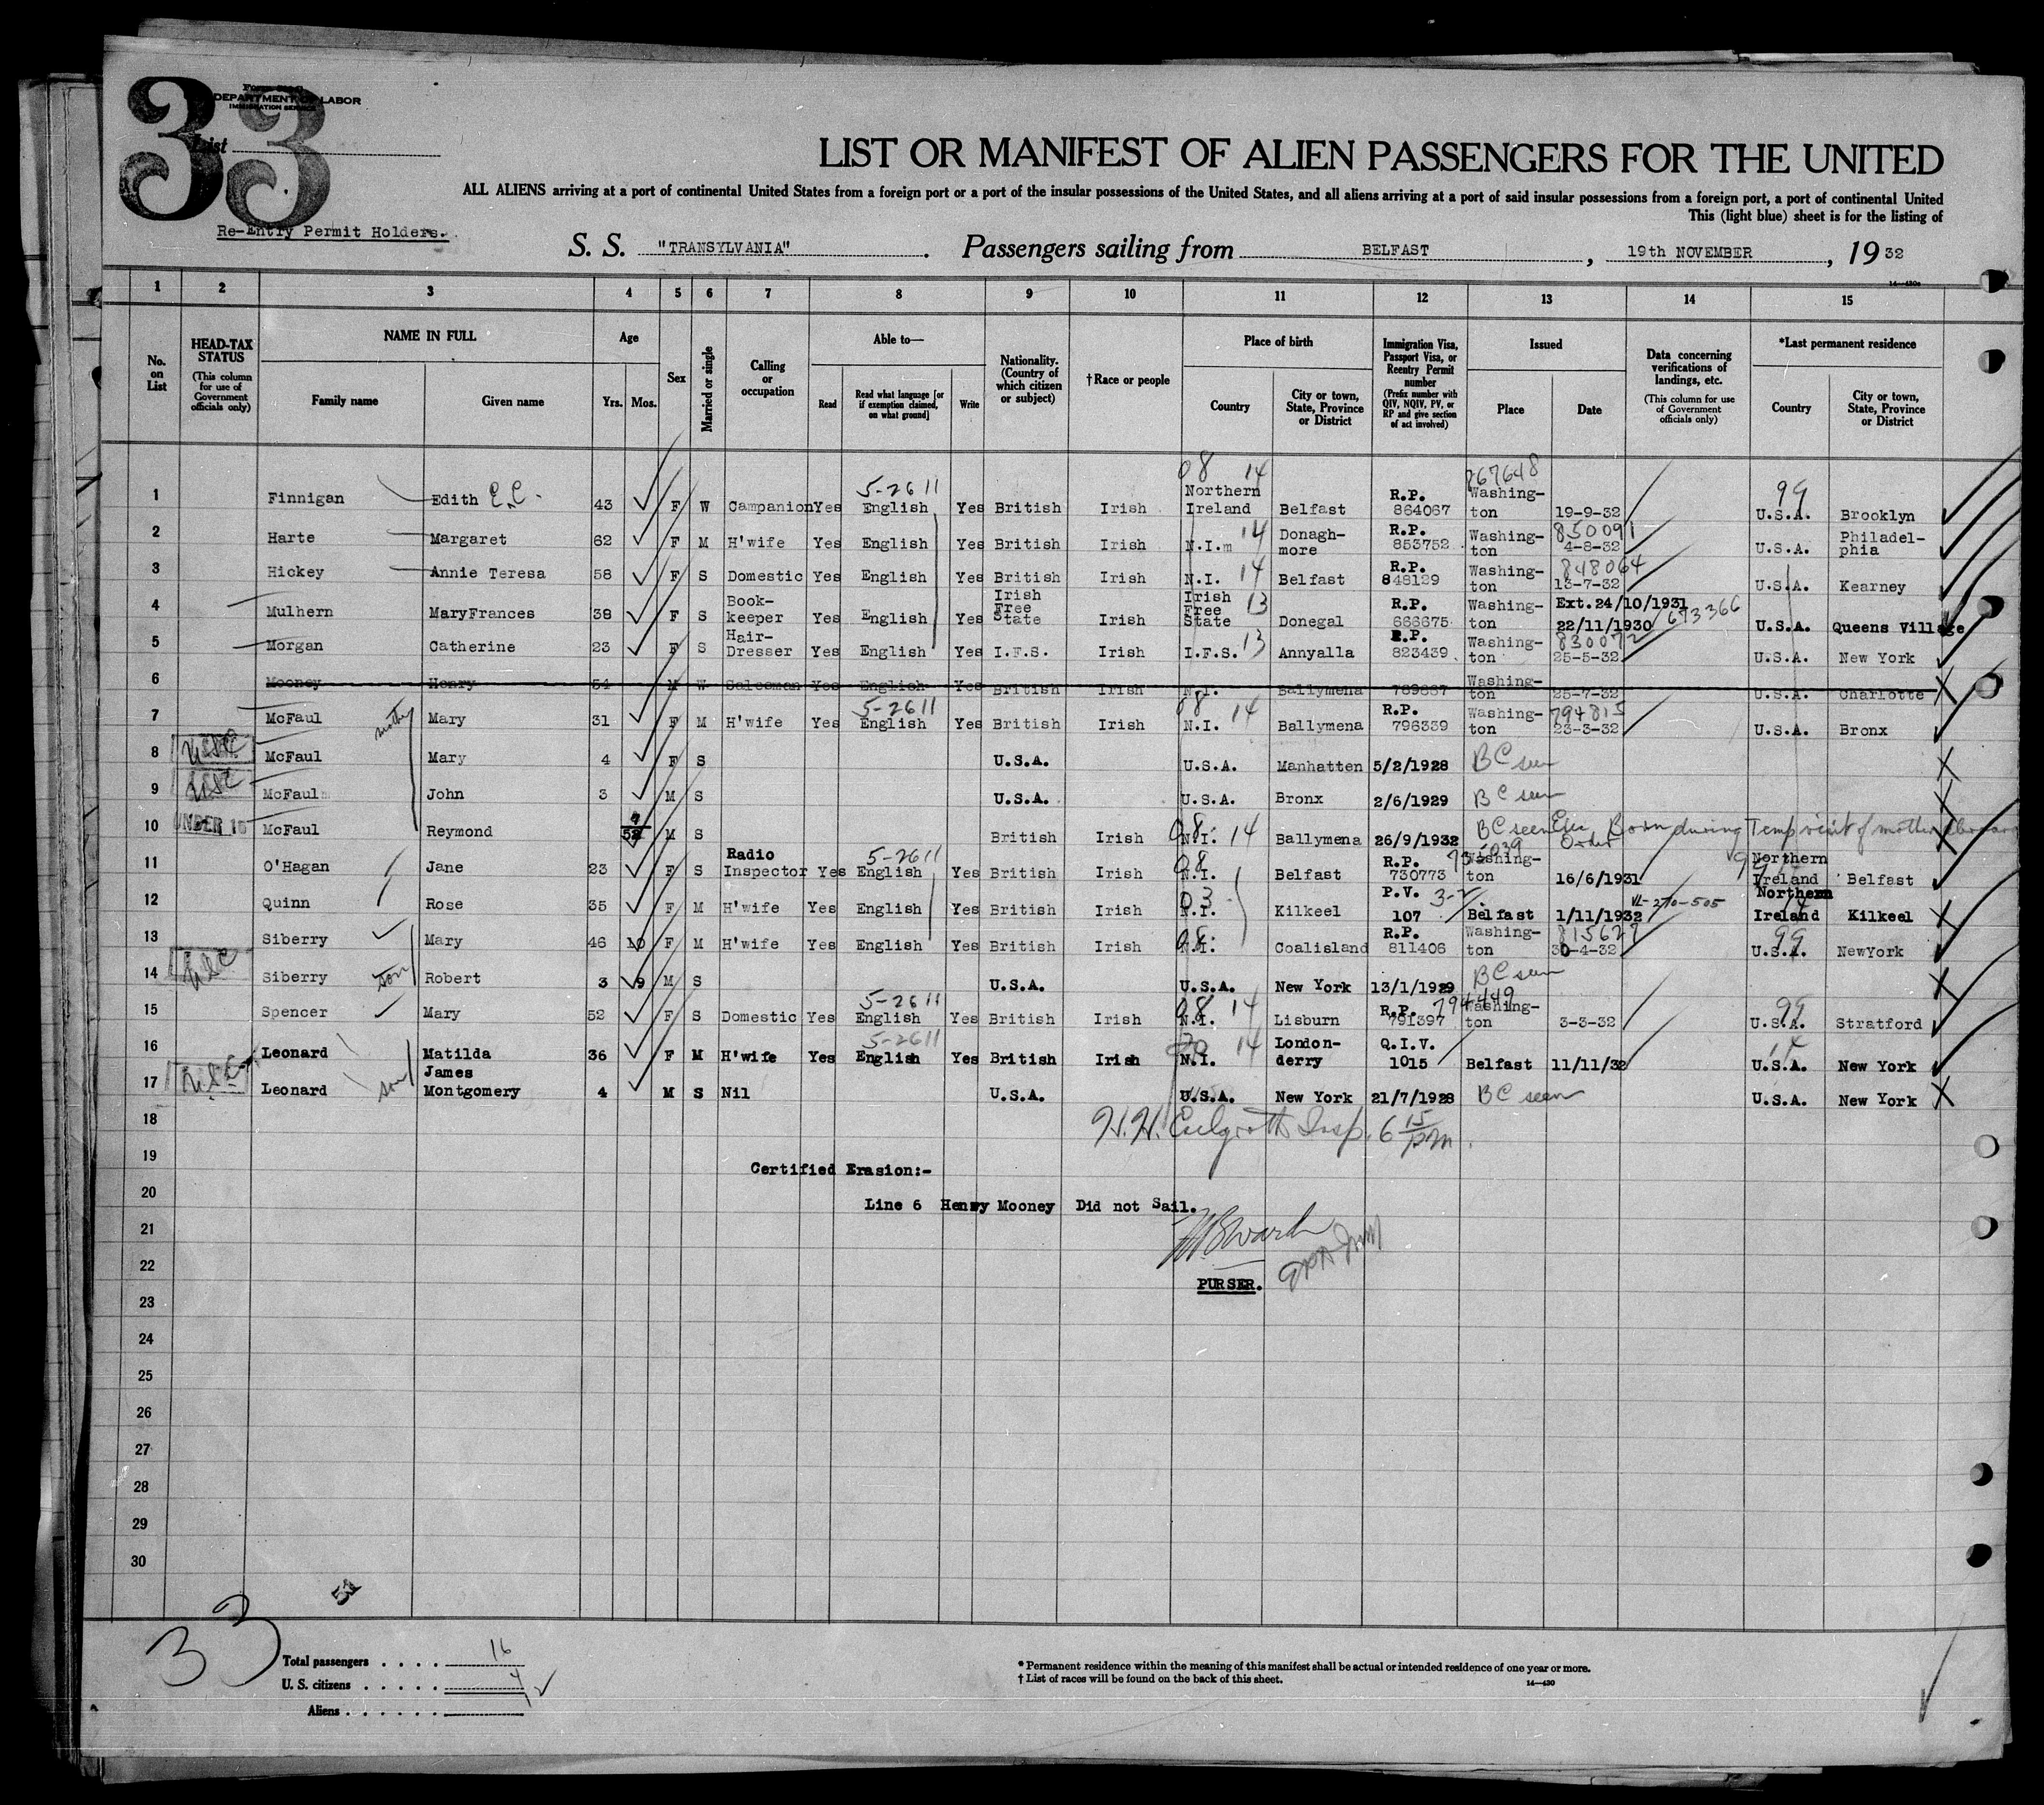 33
Form 500 B
DEPARTMENT OF LABOR
IMMIGRATION SERVICE
List
LIST OR MANIFEST OF ALIEN PASSENGERS FOR THE UNITED
ALL ALIENS arriving at a port of continental United States from a foreign port or a port of the insular possessions of the United States, and all aliens arriving at a port of said insular possessions from a foreign port, a port of continental United
This (light blue) sheet is for the listing of
Re-Entry Permit Holders.
S. S. "TRANSYLVANIA". Passengers sailing from BELFAST, 19th NOVEMBER, 1932
1 2 3 4 5 6 7 8 9 10 11 12 13 14 15
No. on List
HEAD-TAX STATUS (This column for use of Government officials only)
NAME IN FULL
Family name Given name
Age
Yrs. Mos.
Sex
Married or single
Calling or occupation
Able to—
Read Read what language [or if exemption claimed, on what ground] Write
Nationality. (Country of which citizen or subject)
†Race or people
Place of birth
Country City or town, State, Province or District
Immigration Visa, Passport Visa, or Reentry Permit number (Prefix number with QIV, NQIV, PV, or RP and give section of act involved)
Issued
Place Date
Data concerning verifications of landings, etc. (This column for use of Government officials only)
*Last permanent residence
Country City or town, State, Province or District
08 14 867648
1 Finnigan Edith E.C. 43 F W Campanion Yes 5-2611 English Yes British Irish Northern Ireland Belfast R.P. 864067 Washington 19-9-32 99 U.S.A. Brooklyn
2 Harte Margaret 62 F M H'wife Yes English Yes British Irish N.I. 14 Donaghmore R.P. 853752 Washington 850091 4-8-32 U.S.A. Philadelphia
3 Hickey Annie Teresa 58 F S Domestic Yes English Yes British Irish N.I. 14 Belfast R.P. 848129 Washington 848064 13-7-32 U.S.A. Kearney
4 Mulhern MaryFrances 38 F S Book-keeper Yes English Yes Irish Free State Irish Irish Free State 13 Donegal R.P. 666675 Washington Ext.24/10/1931 22/11/1930 673366 U.S.A. Queens Village
5 Morgan Catherine 23 F S Hair-Dresser Yes English Yes I.F.S. Irish I.F.S. 13 Annyalla R.P. 823439 Washington 830072 25-5-32 U.S.A. New York
6 Mooney Henry 54 M W Salesman Yes English Yes British Irish N.I. Ballymena 789887 Washington 25-7-32 U.S.A. Charlotte
7 McFaul mother Mary 31 F M H'wife Yes 5-2611 English Yes British Irish 08 N.I. 14 Ballymena R.P. 796339 Washington 794815 23-3-32 U.S.A. Bronx
8 USC McFaul Mary 4 F S U.S.A. U.S.A. Manhatten 5/2/1928 BC seen
9 USC McFaul John 3 M S U.S.A. U.S.A. Bronx 2/6/1929 BC seen
10 UNDER 16 McFaul Reymond M S British Irish 08 N.I. 14 Ballymena 26/9/1932 BC seen Exec Order Born during Temp visit of mother abroad
11 O'Hagan Jane 23 F S Radio Inspector Yes 5-2611 English Yes British Irish 08 N.I. Belfast R.P. 730773 Washington 16/6/1931 Northern Ireland Belfast
12 Quinn Rose 35 F M H'wife Yes English Yes British Irish 03 N.I. Kilkeel P.V. 3-2 107 Belfast 1/11/1932 VL-270-505 Northern Ireland Kilkeel
13 Siberry Mary 46 10 F M H'wife Yes English Yes British Irish 08 N.I. Coalisland R.P. 811406 Washington 815627 30-4-32 99 U.S.A. NewYork
14 USC Siberry son Robert 3 9 M S U.S.A. U.S.A. New York 13/1/1929 BC seen
15 Spencer Mary 52 F S Domestic Yes 5-2611 English Yes British Irish 08 N.I. 14 Lisburn R.P. 791397 794449 Washington 3-3-32 99 U.S.A. Stratford
16 Leonard Matilda 36 F M H'wife Yes 5-2611 English Yes British Irish N.I. 14 Londonderry Q.I.V. 1015 Belfast 11/11/32 14 U.S.A. New York
17 USC Leonard son James Montgomery 4 M S Nil U.S.A. U.S.A. New York 21/7/1928 BC seen U.S.A. New York
18 Insp. 6 15 pm.
19 Certified Erasion:-
20 Line 6 Henry Mooney Did not Sail.
21
22
PURSER.
23
24
25
26
27
28
29
30
33
Total passengers . . . . 16
U. S. citizens . . . . . 4
Aliens . . . . . .
* Permanent residence within the meaning of this manifest shall be actual or intended residence of one year or more.
† List of races will be found on the back of this sheet.
14—430